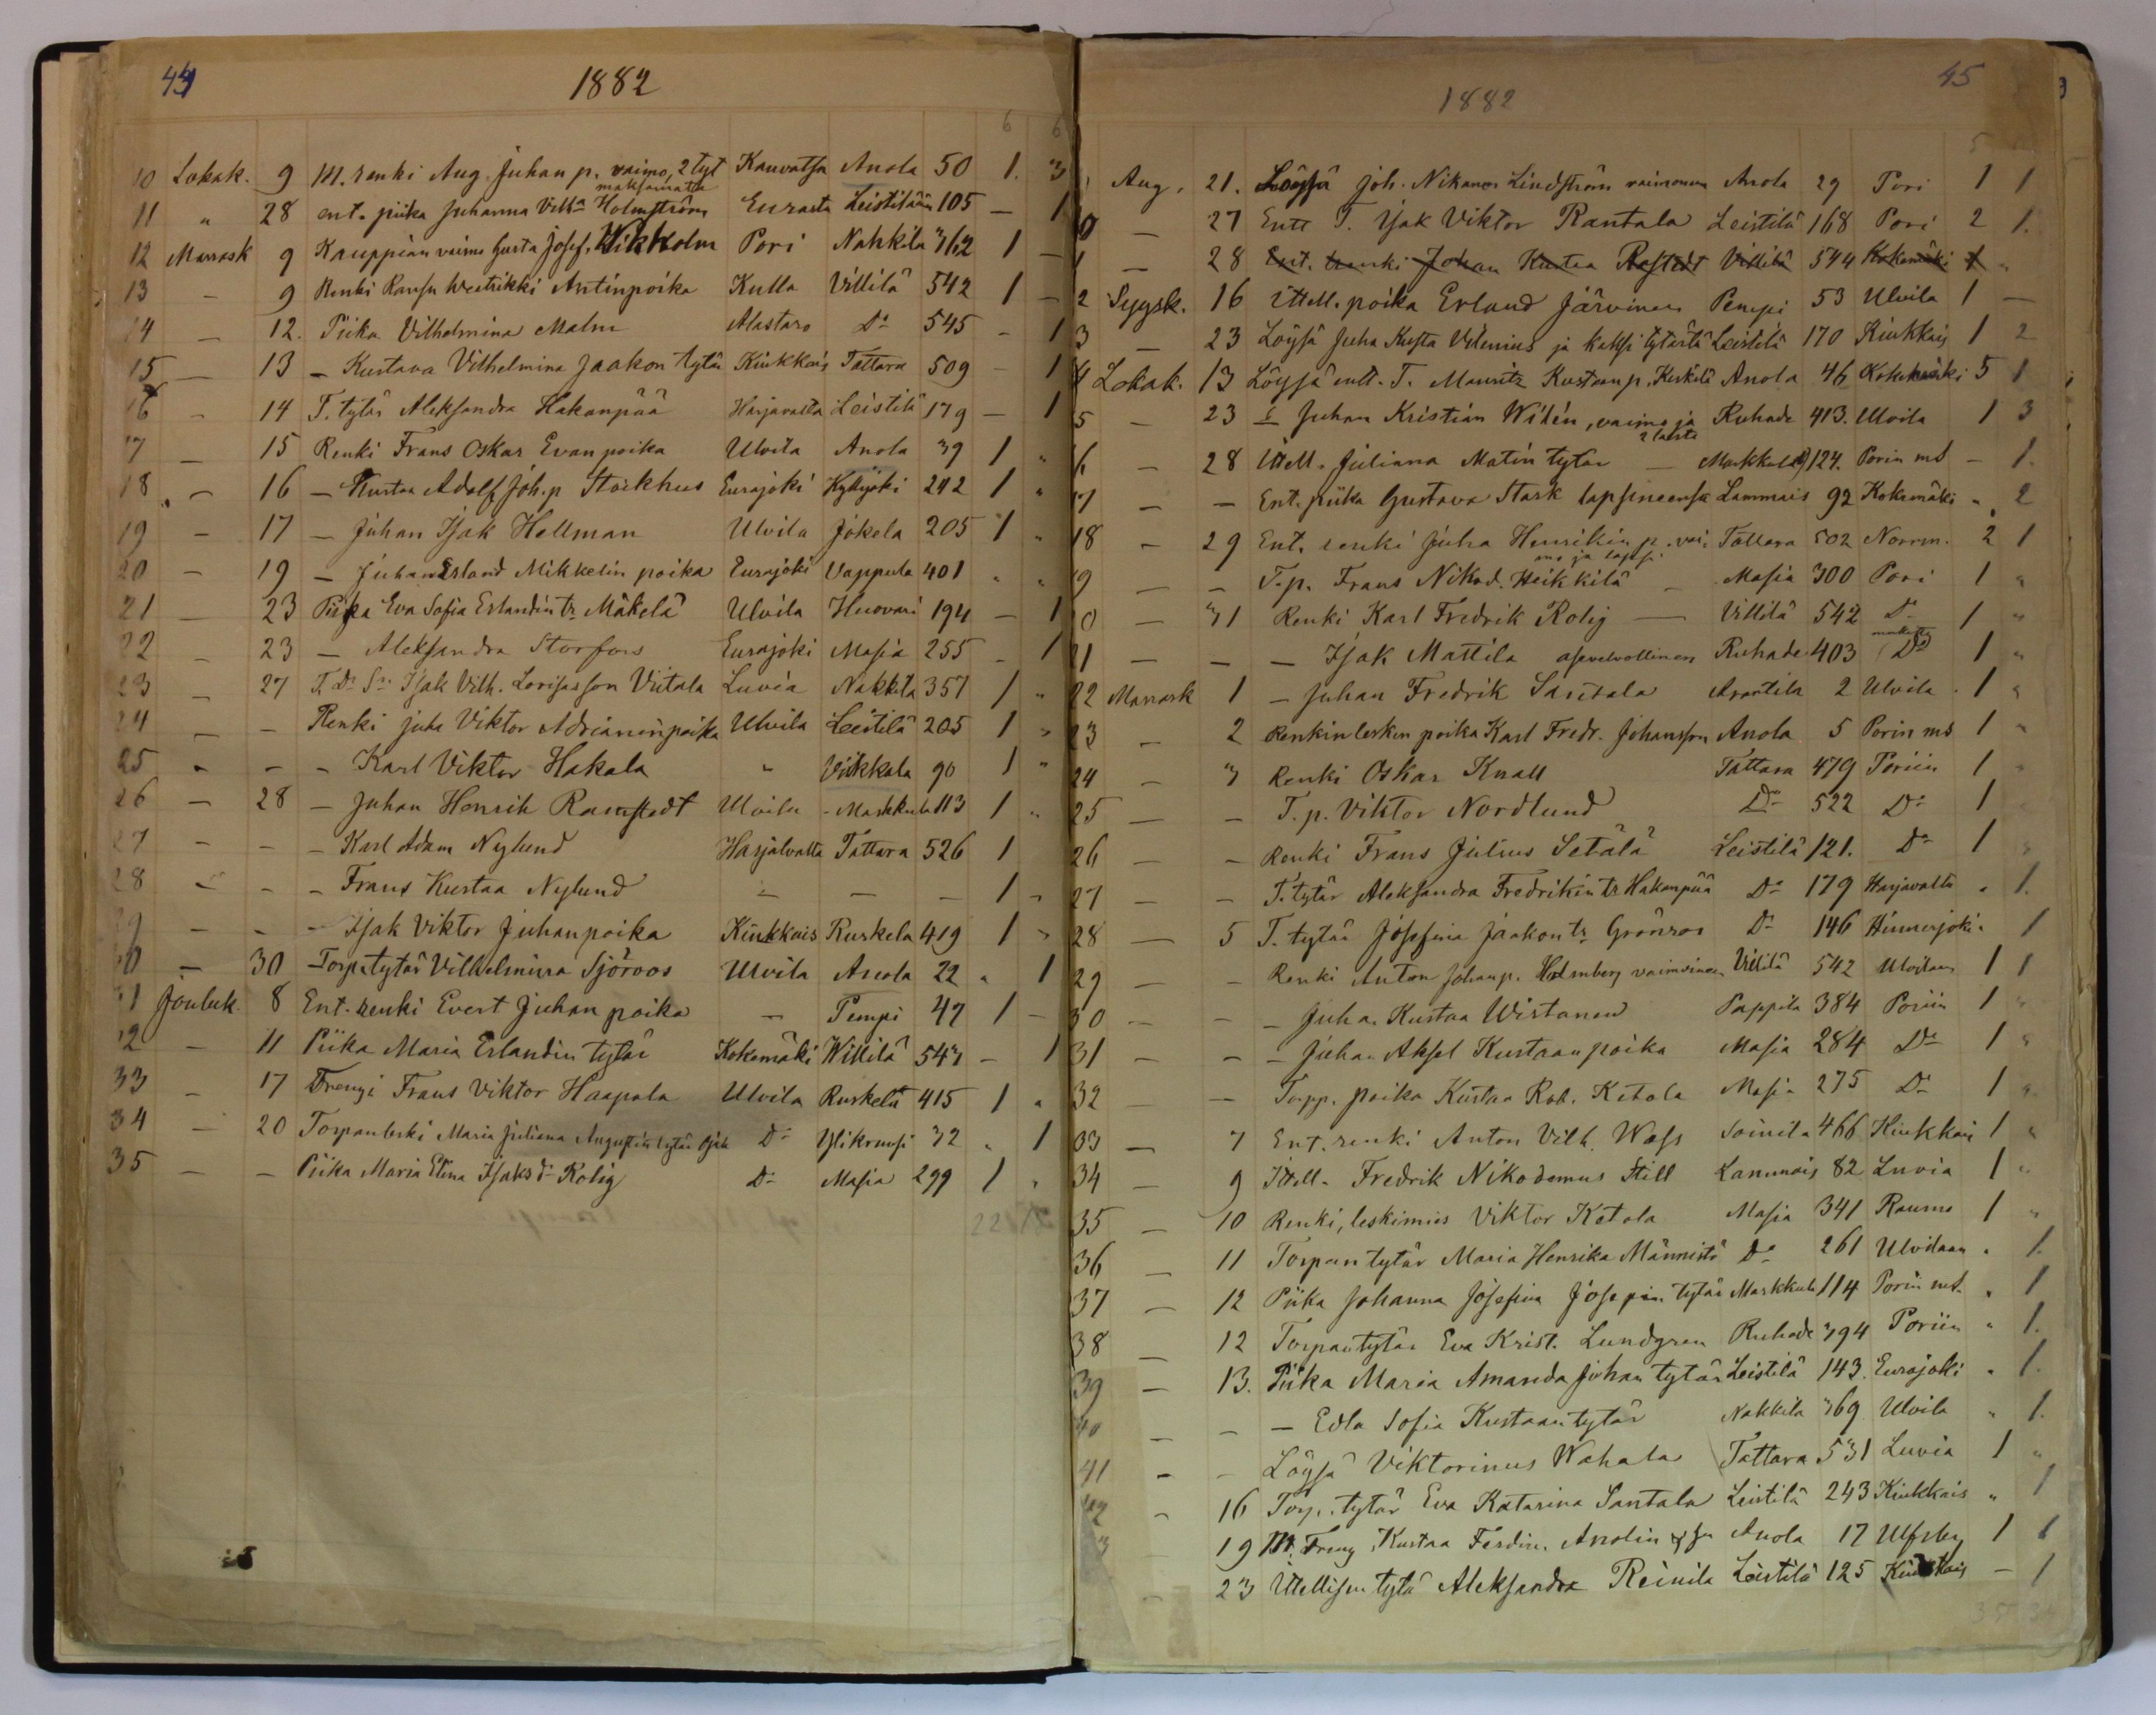 44
1882
6 6
10 Lokak. 9 M. renki Aug. Juhan p. vaimo, 2 tyt Kauvatsa Anola 50 1. 3
maksamatta
11 " 28 ent. piika Juhanna Vilh:a Holmström Eurasta Leistilään 105 — 1
12 Marrask 9 Kauppian vaimo Gusta Josef. Wikholm Pori Nakkila 362 1 —
13 - 9 Renki Ransu Weetrikki Antinpoika Kulla Villilä 542 1 —
14 — 12. Piika Vilhelmina Malm Alastaro D:o 545 - 1
15 — 13 — Kustava Vilhelmina Jaakon tytär Kiukkais Tattara 509 - 1
16 - 14 T. tytär Aleksandra Hakanpää Harjavalta Leistilä 179 — 1
17 — 15 Renki Frans Oskar Evan poika Ulvila Anola 39 1 "
18 - 16 — Kustaa Adolf Joh.p Stockhus Eurajoki Kyllijoki 242 1 "
19 - 17 — Juhan Isak Hellman Ulvila Jokela 205 1 "
20 — 19 — Juhan Erland Mikkelin poika Eurajoki Vappula 401 " "
21 — 23 Piika Eva Sofia Erlandin tr. Mäkelä Ulvila Huovari 194 — 1
22 - 23 — Aleksandra Storfors Eurajoki Masia 255 - 1
23 — 27 T. D:o S:n Isak Vilh. Lorisasson Viitala Luvia Nakkila 357 1 "
24 — - Renki Juha Viktor Adrianinpoika Ulvila Leistilä 205 1 "
25 - - - Karl Viktor Hakala " Viikkala 90 1 "
26 — 28 — Juhan Henrik Ramstedt Ulvila - Markkula 113 1 "
27 - - - Karl Adam Nylund Harjalvalta Tattara 526 1
28 - - - Frans Kustaa Nylund — — — 1 "
29 - - - Isak Viktor Juhanpoika Kiukkais Ruskela 419 1 "
30 — 30 Torp. tytär Vilhelmina Sjöroos Ulvila Anola 22 " 1
31 Jouluk. 8 Ent. renki Evert Juhan poika — Pempi 47 1 —
32 - 11 Piika Maria Erlandin tytär Kokemäki Willilä 543 - 1
33 - 17 Trengi Frans Viktor Haapala Ulvila Ruskela 415 1 "
34 — 20 Torpanleski Maria Juliana Augustin tytär Ojala D:o Ylikruusi 32 " 1
35 — — Piika Maria Elina Isaks d:r Rolig D:o Masia 299 1 "
45
1882
5
Aug. 21. Löysä Joh. Nikanor Lindström vaimonensa Anola 29 Pori 1 1
10 — 27 Entt T. Isak Viktor Rantala Leistilä 168 Pori 2 1.
1 — 28 Ent. trenki Johan Kustaa Rastedt Villilä 544 Kokemäki 1 "
2 Syysk. 16 Ittell. poika Erland Järvinen Pempi 53 Ulvila 1 —
3 — 23 Löysä Juha Kusta Vilenius ja kaksi tytärtä Leistilä 170 Kiukkais 1 2
4 Lokak. 13 Löysä entt. T. Mauritz Kustaan p. Keskilä Anola 46 Kokemäki 5 1
5 — 23 — Juhan Kristian Widén, vaimo ja Ruhade 413. Ulvila 1 3
2 lasta
6 — 28 Ittell. Juliana Matin tytär — Markkula 124. Porin ms — 1.
17 — — Ent. piika Gustava Stark lapsineensa Lammais 92 Kokemäki " 2
18 - 29 Ent. renki Juha Henrikin p. vai- Tattara 502 Norrm. 2 1
mo ja lapsi
19 — — T.p. Frans Nikod. Heikkilä — Masia 300 Pori 1 "
20 — 31 Renki Karl Fredrik Rolig — Villilä 542 D:o 1 "
21 — — — Isak Mattila asevelvollinen Ruhade 403 D:o 1 "
22 Marrask 1 — Juhan Fredrik Santala Arantila 2 Ulvila 1 "
23 — 2 Renkin lesken poika Karl Fredr. Johansson Anola 5 Porin ms 1 "
24 — 3 Renki Oskar Knall Tattara 479 Poriin 1 "
25 — — T.p. Viktor Nordlund D:o 522 D:o 1
26 — - Renki Frans Julius Setälä Leistilä 121. D:o 1 "
27 — - T. tytär Aleksandra Fredrikin tr Hakanpää D:o 179 Harjavalta " 1.
28 — 5 T. tytär Josefina Jaakon tr. Grönroos D:o 146 Hinnerjoki " 1
29 — - Renki Anton Johan p. Holmberg vaimoineen Villilä 542 Ulvilaan 1 1
30 — - — Juha Kustaa Wistanen Pappila 384 Poriin 1 "
31 — - — Juhan Aksel Kustaan poika Masia 284 D:o 1 "
32 — — Torpp. poika Kustaa Rob. Ketola Masia 275 D:o 1 "
33 — 7 Ent. renki Anton Vilh. Wass Soinila 466 Kiukkais 1 "
34 — 9 Ittell. Fredrik Nikodemus Still Lammais 82 Luvia 1 "
35 — 10 Renki, leskimies Viktor Ketola Masia 341 Rauma 1 "
36 — 11 Torpan tytär Maria Henrika Männistö D:o 261 Ulvilaan " 1.
37 — 12 Piika Johanna Josefina Josepin tytär Markkula 114 Porin ms. " 1
38 — 12 Torpantytär Eva Krist. Lundgren Ruhade 394 Poriin " 1.
39 — 13. Piika Maria Amanda Johan tytär Leistilä 143. Eurajoki " 1.
40 — - — Edla Sofia Kustaan tytär Nakkila 369 Ulvila " 1.
41 - - Löysä Viktorinus Wahala Tattara 531 Luvia 1 "
42 - 16 Torp. tytär Eva Katarina Santala Leistilä 243 Kiukkais " 1
3 19 M. Treng Kustaa Ferdin. Anolin Anola 17 Ulfsby 1 1
- 23 Ittellisen tytär Aleksandra Reinila Leistilä 125 Kiukkais — 1